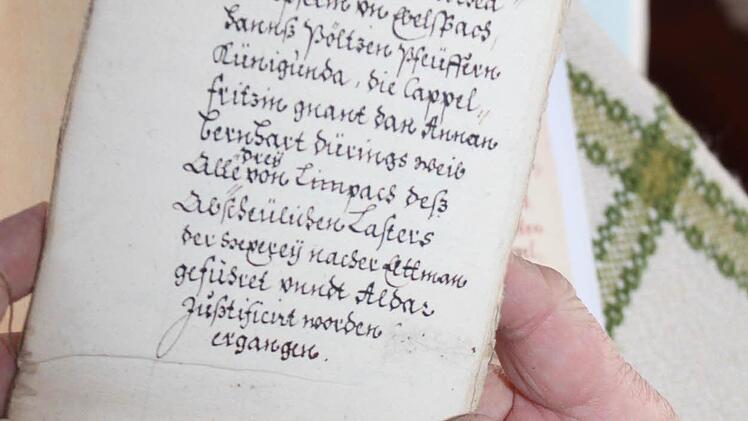 von Ebelsbach,
Hannß Pöltzen Pfeüffern
Künigunda, die Cappel„
fritzin gnant dan Annan
bernhart dürings weib
Alle drey von Limpach deß
Abscheülichen Lasters
der hexerey nacher Eltman
geführet vnndt Aldar
Justificirt worden
ergangen.